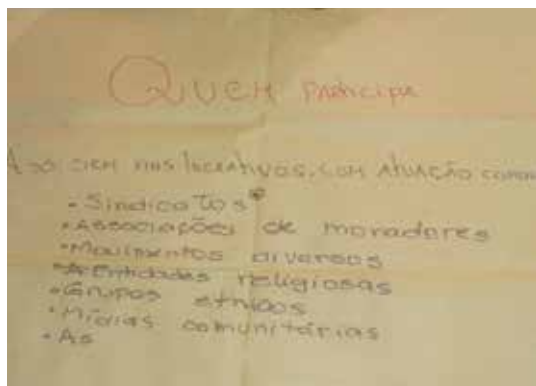 QUEM PARTICIPA
SEM FINS LUCRATIVOS, COM ATUAÇÃO
• Sindicatos
• Associações de moradores
• Movimentos diversos
• Entidades religiosas
• Grupos etnicos
• Mídias comunitárias
• As